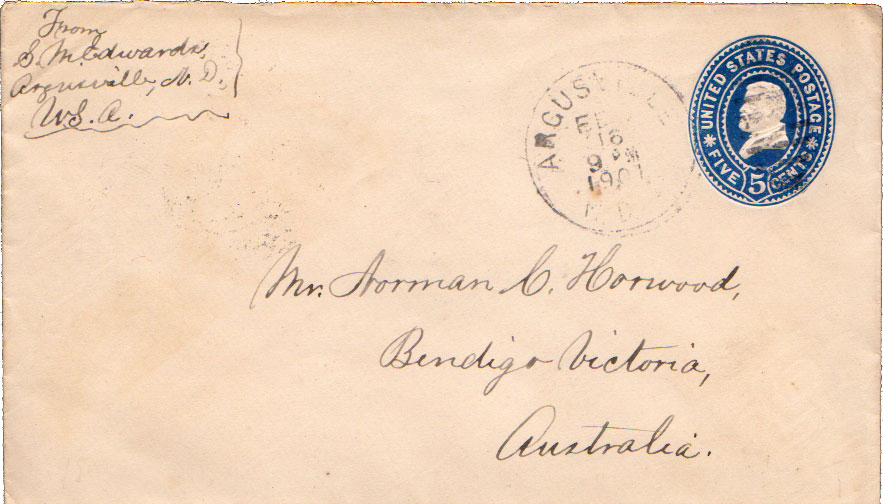 From
S. M. Edwards,
Argusville, N. D.,
U.S.A.
ARGUSVILLE
1901
N.D.
UNITED STATES POSTAGE
FIVE 5 CENTS
Mr. Norman C. Horwood,
Bendigo Victoria,
Australia.